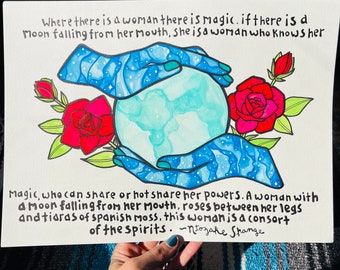 Where there is a woman there is magic. if there is a
Moon falling from her Mouth, she is a woman who knows her
Magic, who can share or not share her powers. A woman with
a moon falling from her Mouth, roses between her legs
and tiaras of spanish moss, this woman is a consort
of the spirits. -Ntozake Shange